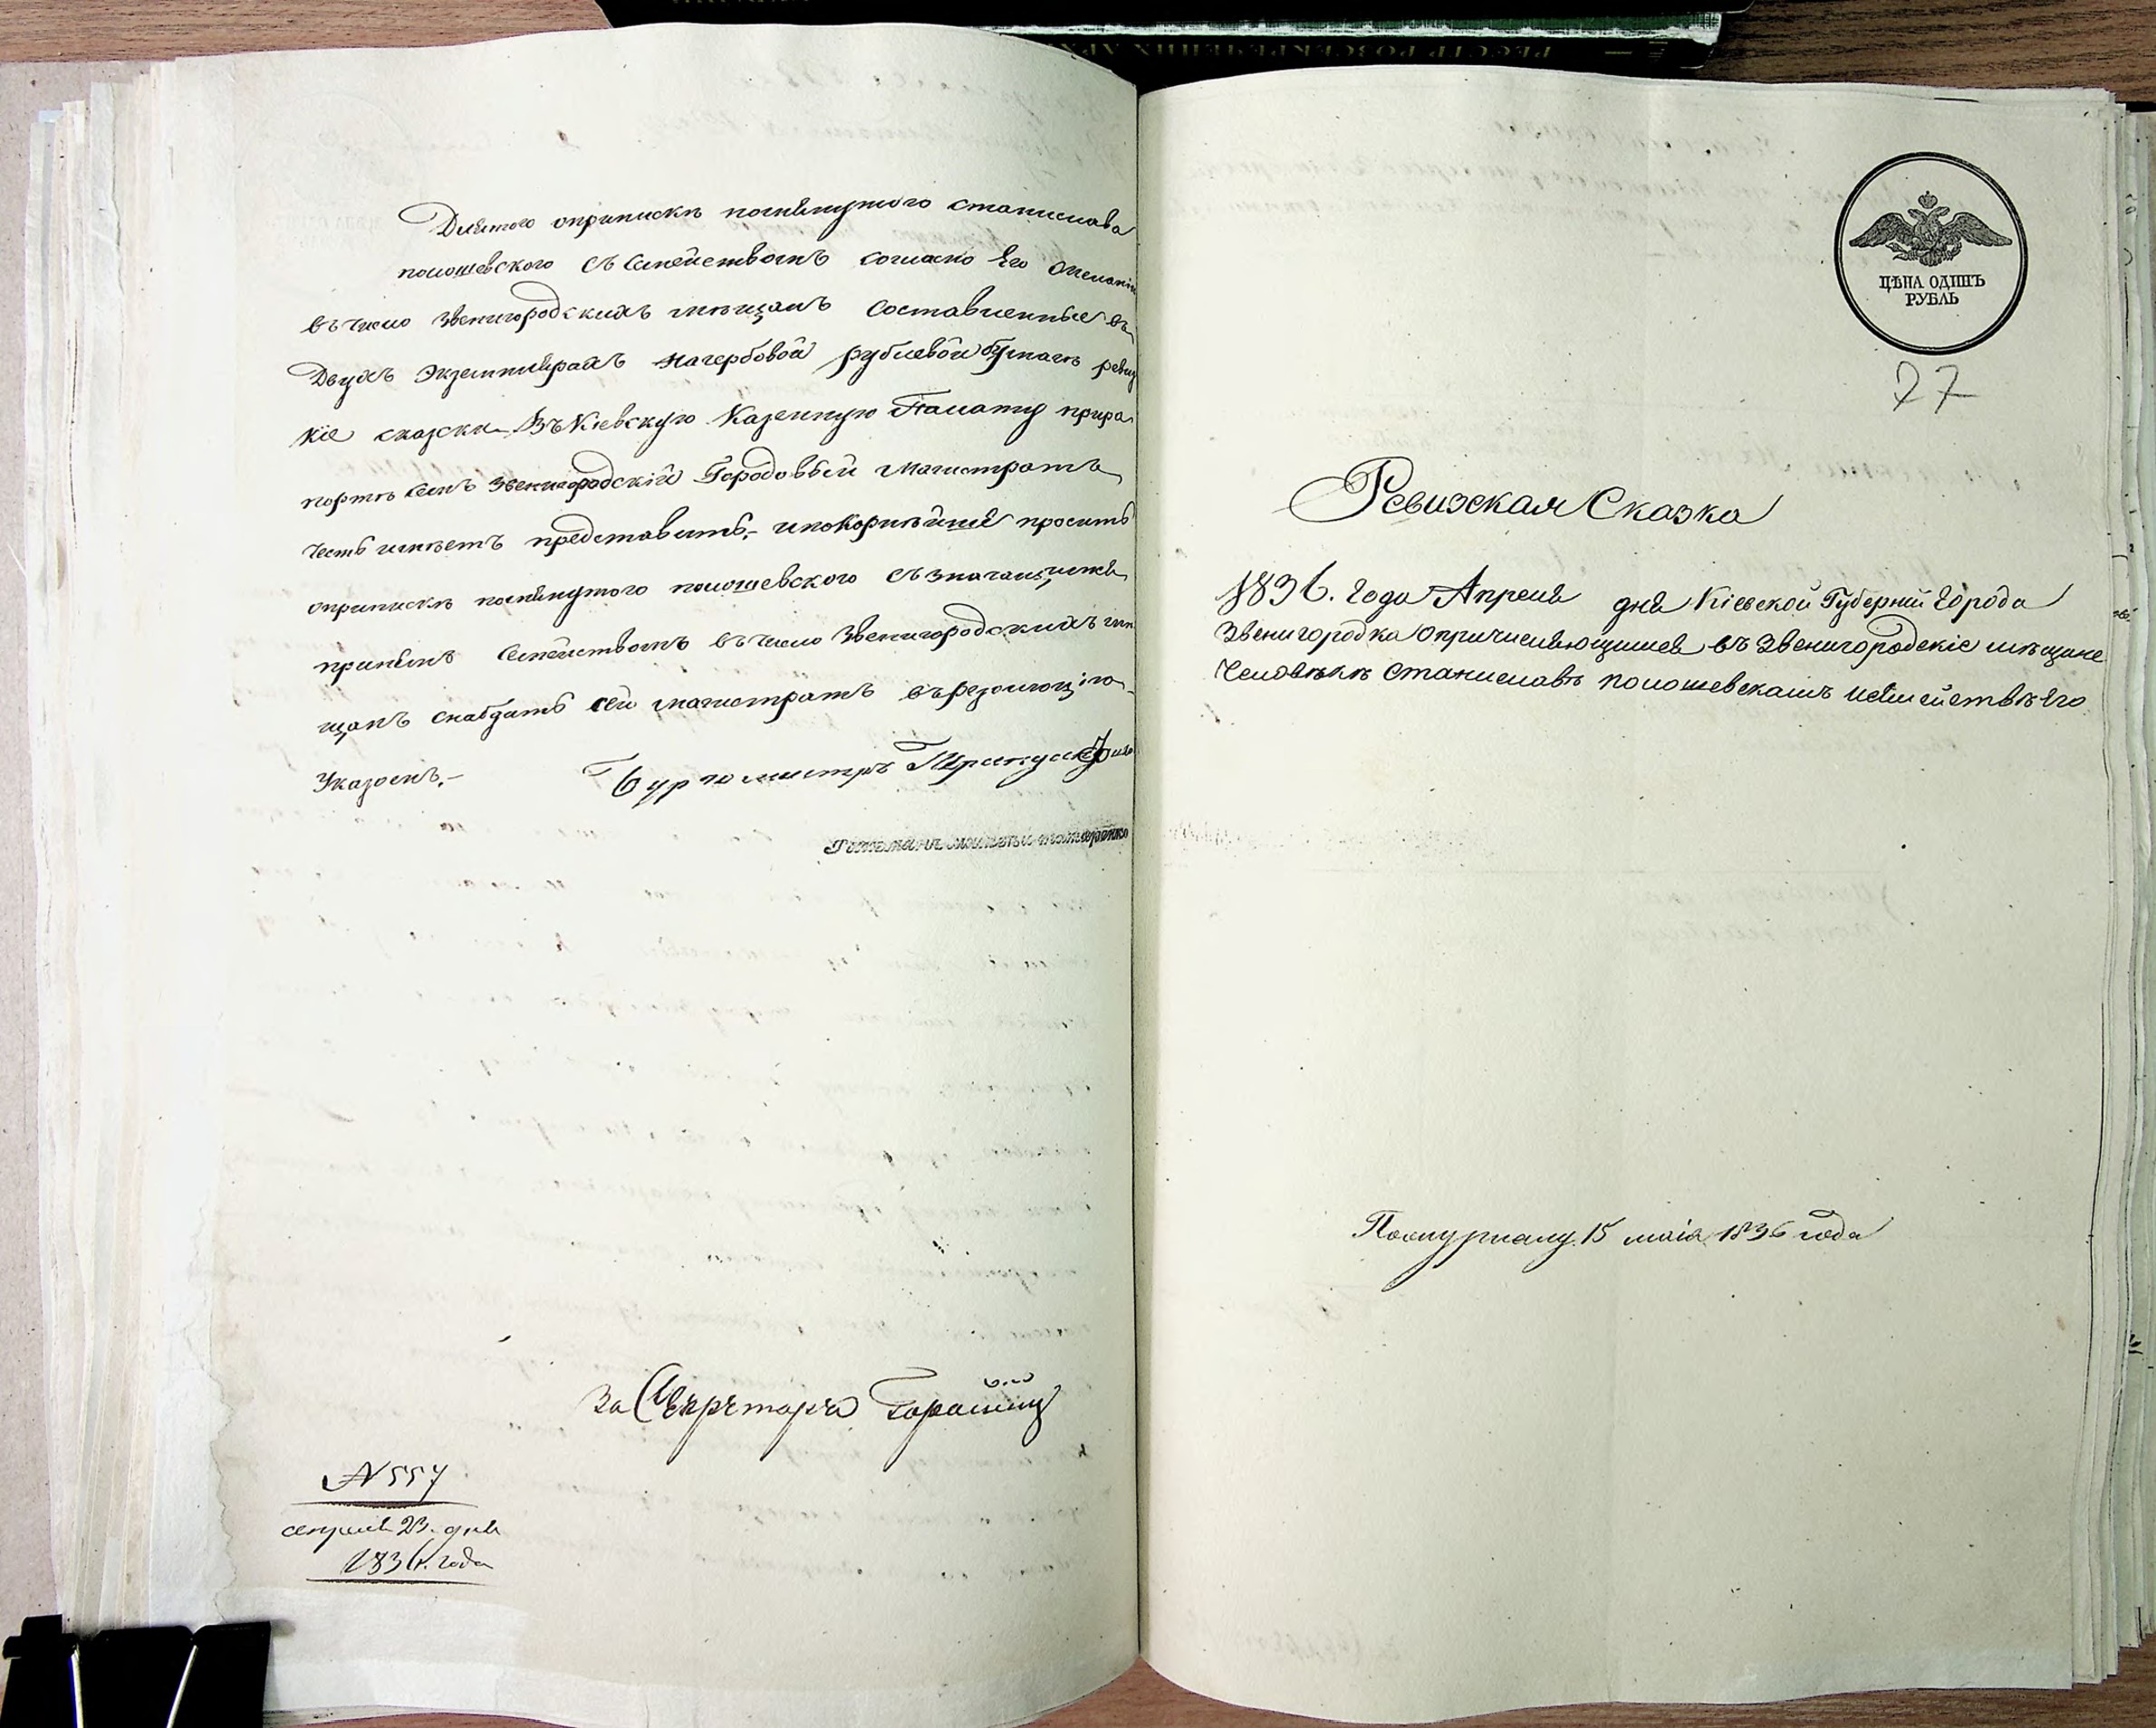 Для того о приписке помянутого Станислава
Полошевского съ Семействомъ согласно Его Желанію
въ число Звенигородскихъ мещанъ Составленные въ
Двухъ Экземплярахъ На гербовой рублевой бумаге ревиз
кіе сказки Въ Кіевскую Казенную Палату при ра
порте Семъ Звенигородскій Городовый Магистратъ
Честь имеетъ представить,- и покорнейше просить
о приписке помянутого Полошевского съ значащимся
при немъ Семействомъ въ число Звенигородскихъ ме
щанъ снабдить сей магистратъ въ резолюцію
Указомъ.-
Бургомистръ
За Секретаря
N 557
апреля 23. дня
1836. года
ЦѢНА ОДИНЪ
РУБЛЬ
77
Ревизская Сказка
1836. Года Апреля дня Кіевской Губерніи Города
Звенигородка о причисляющимся въ Звенигородскіе мещане
Человеке Станиславе Полошевскомъ и Семействе Его
По журналу 15 маія 1836 года